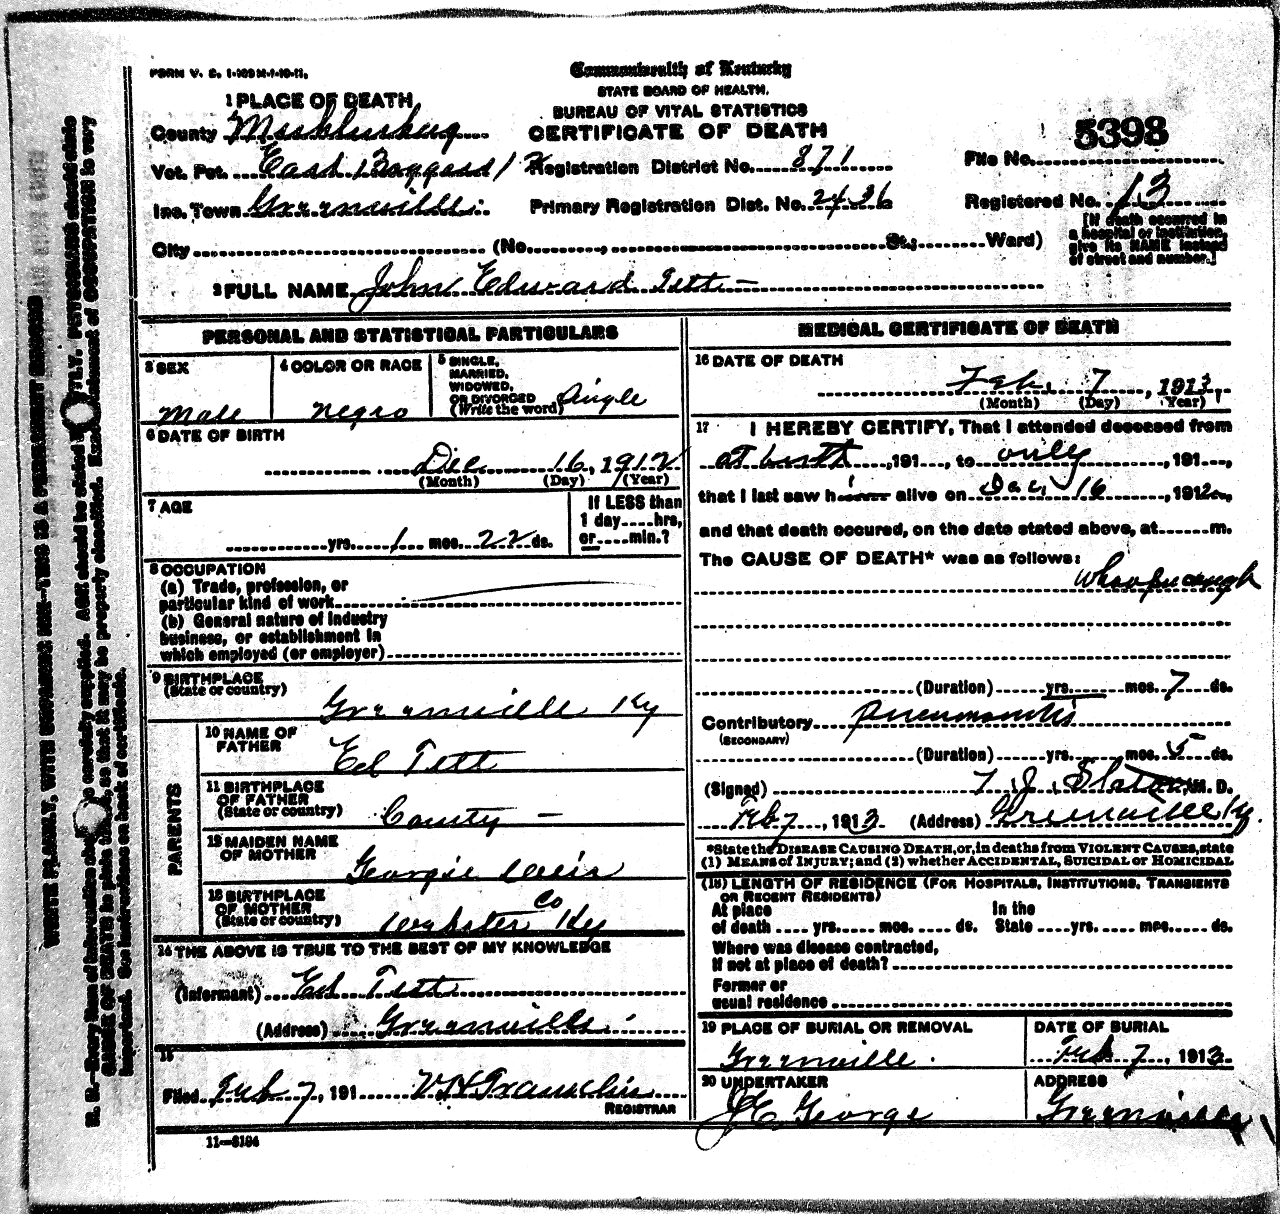 FORM V. S. 1-109 M-1-10-11.
Commonwealth of Kentucky
STATE BOARD OF HEALTH.
BUREAU OF VITAL STATISTICS
CERTIFICATE OF DEATH
1 PLACE OF DEATH
County
Vot. Pct. East
Inc. Town Greenville
City (No. , St.; Ward)
Registration District No. 871
Primary Registration Dist. No. 2436
File No. 5398
Registered No. 13
[If death occurred in
a hospital or institution,
give its NAME instead
of street and number.]
2 FULL NAME John Edward Tett
PERSONAL AND STATISTICAL PARTICULARS
3 SEX
Male
4 COLOR OR RACE
negro
5 SINGLE,
MARRIED,
WIDOWED,
OR DIVORCED
(Write the word) Single
6 DATE OF BIRTH
Dec 16, 1912
(Month) (Day) (Year)
7 AGE
yrs. 1 mos. 22 ds.
If LESS than
1 day hrs,
or min.?
8 OCCUPATION
(a) Trade, profession, or
particular kind of work
(b) General nature of industry
business, or establishment in
which employed (or employer)
9 BIRTHPLACE
(State or country)
Greenville Ky
PARENTS
10 NAME OF
FATHER
Ed Tett
11 BIRTHPLACE
OF FATHER
(State or country)
County
12 MAIDEN NAME
OF MOTHER
Georgie
13 BIRTHPLACE
OF MOTHER
(State or country)
Webster Co Ky
14 THE ABOVE IS TRUE TO THE BEST OF MY KNOWLEDGE
(Informant) Ed Tett
(Address) Greenville
15
Filed Feb 7, 191 V H Franklin
REGISTRAR
11-8194
MEDICAL CERTIFICATE OF DEATH
16 DATE OF DEATH
Feb. 7, 1913,
(Month) (Day) (Year)
17 I HEREBY CERTIFY, That I attended deceased from
at birth, 191 , to only, 191 ,
that I last saw h alive on Dec, 16, 1912,
and that death occured, on the date stated above, at m.
The CAUSE OF DEATH* was as follows:
Whoopencough
(Duration) yrs. mos. 7 ds.
Contributory
(SECONDARY)
(Duration) yrs. mos. 5 ds.
(Signed) T. J. Slaton M. D.
Feb 7, 1913 (Address) Greenville Ky.
*State the DISEASE CAUSING DEATH, or, in deaths from VIOLENT CAUSES, state
(1) MEANS OF INJURY; and (2) whether ACCIDENTAL, SUICIDAL or HOMICIDAL
(18) LENGTH OF RESIDENCE (FOR HOSPITALS, INSTITUTIONS, TRANSIENTS
OR RECENT RESIDENTS)
At place
of death yrs. mos. ds.
In the
State yrs. mos. ds.
Where was disease contracted,
If not at place of death?
Former or
usual residence
19 PLACE OF BURIAL OR REMOVAL
Greenville.
DATE OF BURIAL
Feb 7, 1913
20 UNDERTAKER
J E George
ADDRESS
Greenville
WRITE PLAINLY, WITH UNFADING INK-THIS IS A PERMANENT RECORD
N. B.-Every item of information carefully supplied. AGE should be stated PHYSICIANS should state
CAUSE OF DEATH in plain so that it may be properly classified. Exact statement of OCCUPATION is very
important. See instructions on back of certificate.